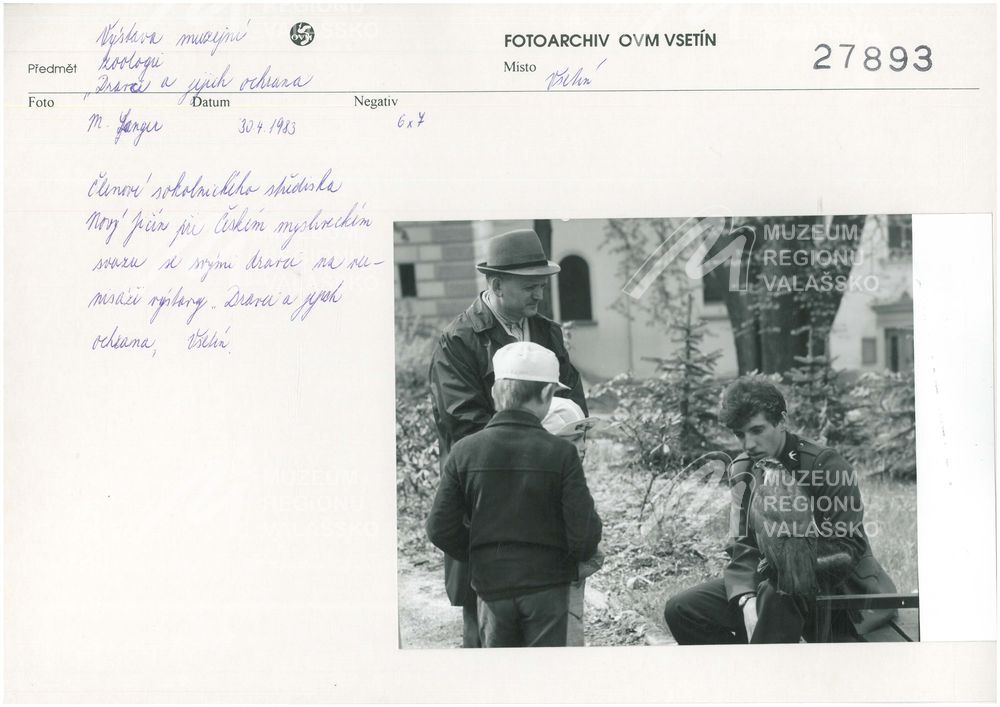 Výstava muzejní
zoologie
Předmět „Dravci a jejich ochrana
OVM
FOTOARCHIV OVM VSETÍN
Místo Vsetín
27893
Foto Datum Negativ
M. Langer 30.4.1983 6x7
Členové sokolnického střediska
Nový Jičín při Českém mysliveckém
svazu se svými dravci na ver-
nisáži výstavy „Dravci a jejich
ochrana, Vsetín.
MUZEUM
REGIONU
VALAŠSKO
MUZEUM
REGIONU
VALAŠSKO
MUZEUM
REGIONU
VALAŠSKO
MUZEUM
REGIONU
VALAŠSKO